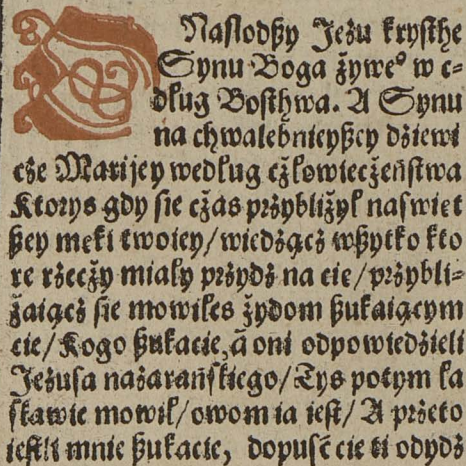 O Naslodßy Jezu krysthe
Synu Boga żywe° w e⸗
dlug Bosthwa. A Synu
na chwalebnieyßey dżiewi
cże Marijey według cżłowiecżeństwa
Ktorys gdy sie cżas prżybliżył naswięt
ßey męki twoiey/wiedżącż wßytko kto
re rżecży miały prżydż na cie/prżybli⸗
żaiącż sie mowiles żydom ßukaiącym
cie/Kogo ßukacie,a oni odpowiedżieli
Jeżusa nażarańskiego/Tys potym ła
skawie mowił/owom ia iest/A prżeto
iestli mnie ßukacie, dopusć cie ti odydż